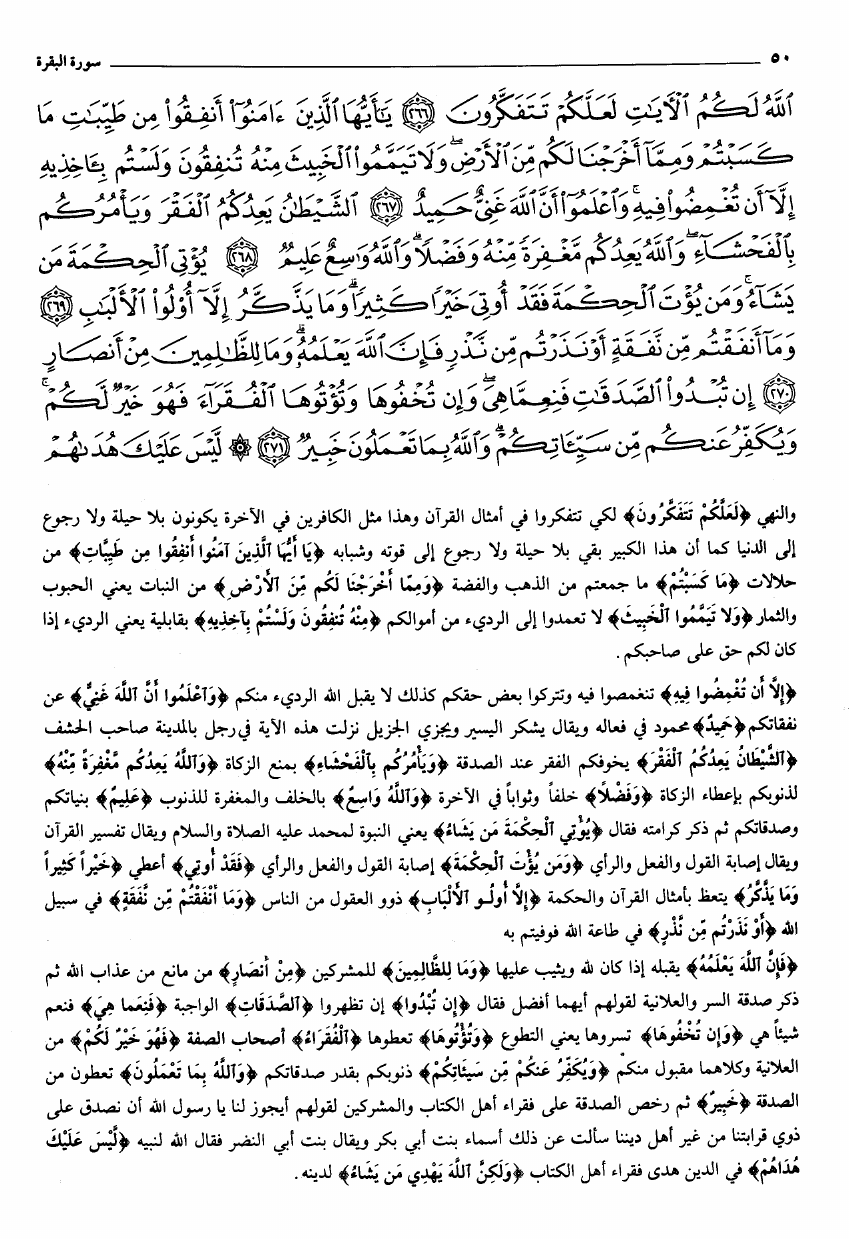 ٥٠ سورة البقرة
ٱللَّهُ لَكُمُ ٱلْآيَاتِ لَعَلَّكُمْ تَتَفَكَّرُونَ ﴿٢٦٦﴾ يَٰٓأَيُّهَا ٱلَّذِينَ ءَامَنُوٓا۟ أَنفِقُوا۟ مِن طَيِّبَٰتِ مَا
كَسَبْتُمْ وَمِمَّآ أَخْرَجْنَا لَكُم مِّنَ ٱلْأَرْضِ ۖ وَلَا تَيَمَّمُوا۟ ٱلْخَبِيثَ مِنْهُ تُنفِقُونَ وَلَسْتُم بِـَٔاخِذِيهِ
إِلَّآ أَن تُغْمِضُوا۟ فِيهِ ۚ وَٱعْلَمُوٓا۟ أَنَّ ٱللَّهَ غَنِىٌّ حَمِيدٌ ﴿٢٦٧﴾ ٱلشَّيْطَٰنُ يَعِدُكُمُ ٱلْفَقْرَ وَيَأْمُرُكُم
بِٱلْفَحْشَآءِ ۖ وَٱللَّهُ يَعِدُكُم مَّغْفِرَةً مِّنْهُ وَفَضْلًا ۗ وَٱللَّهُ وَٰسِعٌ عَلِيمٌ ﴿٢٦٨﴾ يُؤْتِى ٱلْحِكْمَةَ مَن
يَشَآءُ ۚ وَمَن يُؤْتَ ٱلْحِكْمَةَ فَقَدْ أُوتِىَ خَيْرًا كَثِيرًا ۗ وَمَا يَذَّكَّرُ إِلَّآ أُو۟لُوا۟ ٱلْأَلْبَٰبِ ﴿٢٦٩﴾
وَمَآ أَنفَقْتُم مِّن نَّفَقَةٍ أَوْ نَذَرْتُم مِّن نَّذْرٍ فَإِنَّ ٱللَّهَ يَعْلَمُهُۥ ۗ وَمَا لِلظَّٰلِمِينَ مِنْ أَنصَارٍ
﴿٢٧٠﴾ إِن تُبْدُوا۟ ٱلصَّدَقَٰتِ فَنِعِمَّا هِىَ ۖ وَإِن تُخْفُوهَا وَتُؤْتُوهَا ٱلْفُقَرَآءَ فَهُوَ خَيْرٌ لَّكُمْ ۚ
وَيُكَفِّرُ عَنكُم مِّن سَيِّـَٔاتِكُمْ ۗ وَٱللَّهُ بِمَا تَعْمَلُونَ خَبِيرٌ ﴿٢٧١﴾ ۞ لَّيْسَ عَلَيْكَ هُدَىٰهُمْ
والنهي ﴿لَعَلَّكُمْ تَتَفَكَّرُونَ﴾ لكي تتفكروا في أمثال القرآن وهذا مثل الكافرين في الآخرة يكونون بلا حيلة ولا رجوع
إلى الدنيا كما أن هذا الكبير بقي بلا حيلة ولا رجوع إلى قوته وشبابه ﴿يَا أَيُّهَا ٱلَّذِينَ آمَنُوا أَنفِقُوا مِن طَيِّبَاتِ﴾ من
حلالات ﴿مَا كَسَبْتُمْ﴾ ما جمعتم من الذهب والفضة ﴿وَمِمَّا أَخْرَجْنَا لَكُم مِّنَ ٱلْأَرْضِ﴾ من النبات يعني الحبوب
والثمار ﴿وَلَا تَيَمَّمُوا ٱلْخَبِيثَ﴾ لا تعمدوا إلى الرديء من أموالكم ﴿مِنْهُ تُنفِقُونَ وَلَسْتُم بِآخِذِيهِ﴾ بقابلية يعني الرديء إذا
كان لكم حق على صاحبكم.
﴿إِلَّا أَن تُغْمِضُوا فِيهِ﴾ تنغمصوا فيه وتتركوا بعض حقكم كذلك لا يقبل الله الرديء منكم ﴿وَٱعْلَمُوا أَنَّ ٱللَّهَ غَنِيٌّ﴾ عن
نفقاتكم ﴿حَمِيدٌ﴾ محمود في فعاله ويقال يشكر اليسير ويجزي الجزيل نزلت هذه الآية في رجل بالمدينة صاحب الحشف
﴿ٱلشَّيْطَانُ يَعِدُكُمُ ٱلْفَقْرَ﴾ يخوفكم الفقر عند الصدقة ﴿وَيَأْمُرُكُم بِٱلْفَحْشَاءِ﴾ بمنع الزكاة ﴿وَٱللَّهُ يَعِدُكُم مَّغْفِرَةً مِّنْهُ﴾
لذنوبكم بإعطاء الزكاة ﴿وَفَضْلًا﴾ خلفاً وثواباً في الآخرة ﴿وَٱللَّهُ وَاسِعٌ﴾ بالخلف والمغفرة للذنوب ﴿عَلِيمٌ﴾ بنياتكم
وصدقاتكم ثم ذكر كرامته فقال ﴿يُؤْتِي ٱلْحِكْمَةَ مَن يَشَاءُ﴾ يعني النبوة لمحمد عليه الصلاة والسلام ويقال تفسير القرآن
ويقال إصابة القول والفعل والرأي ﴿وَمَن يُؤْتَ ٱلْحِكْمَةَ﴾ إصابة القول والفعل والرأي ﴿فَقَدْ أُوتِيَ﴾ أعطي ﴿خَيْراً كَثِيراً
وَمَا يَذَّكَّرُ﴾ يتعظ بأمثال القرآن والحكمة ﴿إِلَّا أُولُو ٱلْأَلْبَابِ﴾ ذوو العقول من الناس ﴿وَمَا أَنْفَقْتُم مِّن نَّفَقَةٍ﴾ في سبيل
الله ﴿أَوْ نَذَرْتُم مِّن نَّذْرٍ﴾ في طاعة الله فوفيتم به
﴿فَإِنَّ ٱللَّهَ يَعْلَمُهُ﴾ يقبله إذا كان لله ويثيب عليها ﴿وَمَا لِلظَّالِمِينَ﴾ للمشركين ﴿مِنْ أَنصَارٍ﴾ من مانع من عذاب الله ثم
ذكر صدقة السر والعلانية لقولهم أيهما أفضل فقال ﴿إِن تُبْدُوا﴾ إن تظهروا ﴿ٱلصَّدَقَاتِ﴾ الواجبة ﴿فَنِعِمَّا هِيَ﴾ فنعم
شيئاً هي ﴿وَإِن تُخْفُوهَا﴾ تسروها يعني التطوع ﴿وَتُؤْتُوهَا﴾ تعطوها ﴿ٱلْفُقَرَاءَ﴾ أصحاب الصفة ﴿فَهُوَ خَيْرٌ لَكُمْ﴾ من
العلانية وكلاهما مقبول منكم ﴿وَيُكَفِّرُ عَنكُمْ مِّن سَيِّئَاتِكُمْ﴾ ذنوبكم بقدر صدقاتكم ﴿وَٱللَّهُ بِمَا تَعْمَلُونَ﴾ تعطون من
الصدقة ﴿خَبِيرٌ﴾ ثم رخص الصدقة على فقراء أهل الكتاب والمشركين لقولهم أيجوز لنا يا رسول الله أن نصدق على
ذوي قرابتنا من غير أهل ديننا سألت عن ذلك أسماء بنت أبي بكر ويقال بنت أبي النضر فقال الله لنبيه ﴿لَّيْسَ عَلَيْكَ
هُدَاهُمْ﴾ في الدين هدى فقراء أهل الكتاب ﴿وَلَكِنَّ ٱللَّهَ يَهْدِي مَن يَشَاءُ﴾ لدينه.